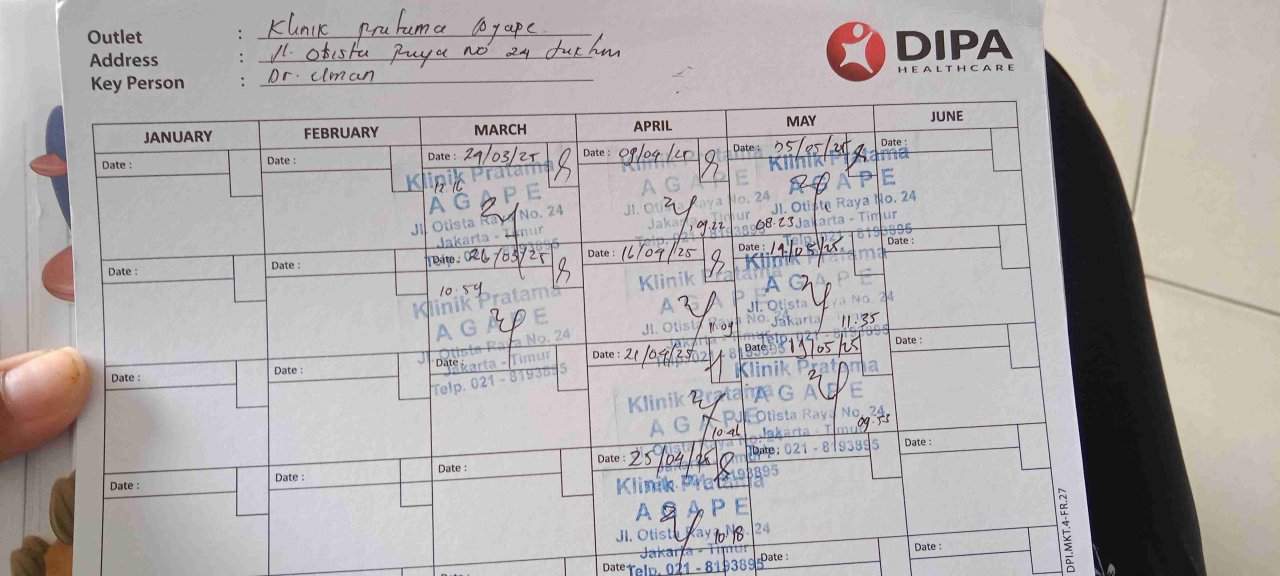 Outlet : Klinik Pratama Agape
Address : Jl. Otista Raya no 24 Jaktim
Key Person : Dr.
DIPA
HEALTHCARE
JANUARY FEBRUARY MARCH APRIL MAY JUNE
Date : Date : Date : Date : 09/04/25 Date : 05/05/25 Date :
12.16
Klinik Pratama
AGAPE
Jl. Otista Raya No. 24
Jakarta - Timur
Telp. 021 - 8193895
Klinik Pratama
AGAPE
Jl. Otista Raya No. 24
Jakarta - Timur
Telp. 021 - 8193895
09.22
Klinik Pratama
AGAPE
Jl. Otista Raya No. 24
Jakarta - Timur
Telp. 021 - 8193895
08.23
Date : Date : Date : 26/03/25 Date : 16/04/25 Date : Date :
10.59
Klinik Pratama
AGAPE
Jl. Otista Raya No. 24
Jakarta - Timur
Telp. 021 - 8193895
Klinik Pratama
AGAPE
Jl. Otista Raya No. 24
11.09
Klinik Pratama
AGAPE
Jl. Otista Raya No. 24
Jakarta
11.35
Date : Date : Date : Date : 21/04/25 Date : 19/05/25 Date :
Klinik Pratama
AGAPE
10.46
Klinik Pratama
AGAPE
Jl. Otista Raya No. 24
Jakarta - Timur
Telp. 021 - 8193895
09.55
Date : Date : Date : Date : 25/04/25 Date : Date :
Klinik Pratama
AGAPE
Jl. Otista Raya No. 24
Jakarta - Timur
Telp. 021 - 8193895
10.18
Date : Date : Date :
DPI.MKT.4-FR.27